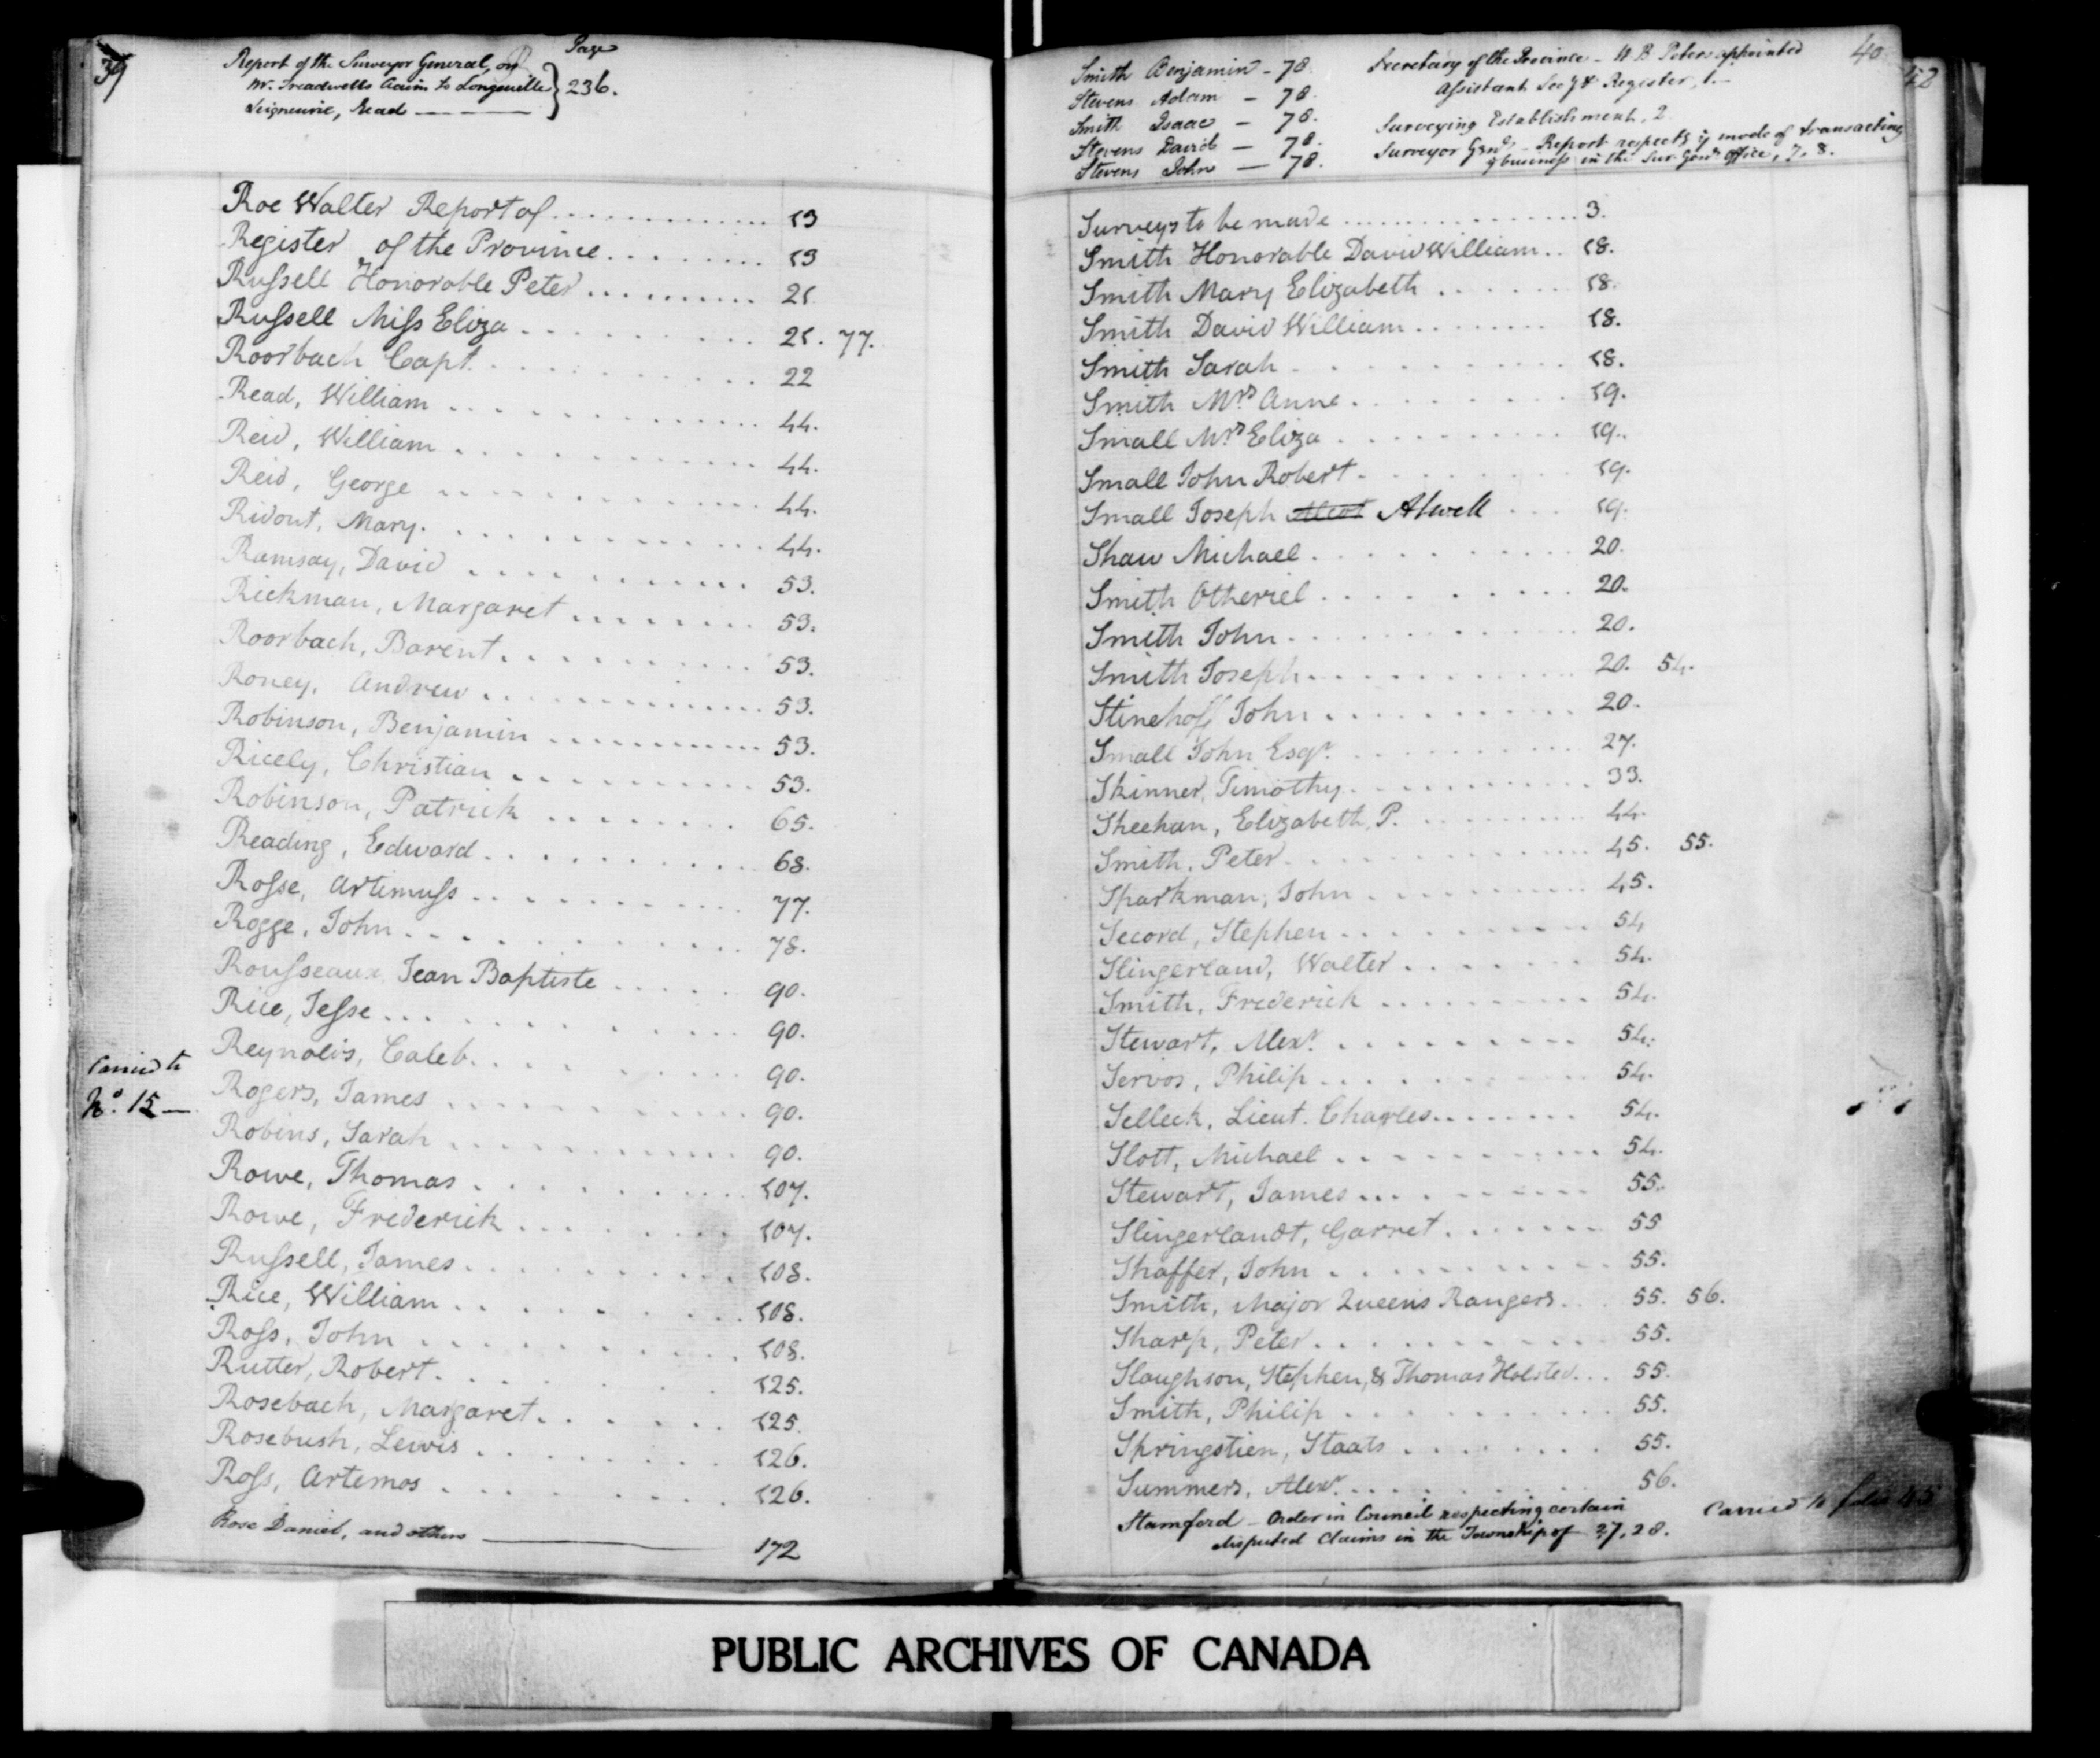 39
Page
Report of the Surveyor General, on
Mr. Treadwells Claim to Longeuille } 236.
Seigneurie, Read
Roe Walter Report of 19
Register of the Province 19
Russell Honorable Peter 21
Russell Miss Eliza 21. 77.
Roorbach Capt. 22
Read, William 44.
Reid, William 44.
Reid, George 44.
Ridout, Mary. 44.
Ramsay, David 53.
Rickman, Margaret 53.
Roorbach, Barent 53.
Roney, Andrew 53.
Robinson, Benjamin 53.
Ricely, Christian 53.
Robinson, Patrick 65.
Reading, Edward 68.
Rosse, Artimuss 77.
Rogge, John 78.
Rousseaux, Jean Baptiste 90.
Rice, Jesse 90.
Reynolds, Caleb. 90.
Carried to
No. 15 —
Rogers, James 90.
Robins, Sarah 90.
Rowe, Thomas 107.
Rowe, Frederick 107.
Russell, James 108.
Rice, William 108.
Ross, John 108.
Rutter, Robert 125.
Rosebach, Margaret 125.
Rosebush, Lewis 126.
Ross, Artemos 126.
Rose Daniel, and others 172
40
Smith Benjamin - 78
Stevens Adam - 78.
Smith Isaac - 78.
Stevens David - 78.
Stevens John - 78.
Secretary of the Province - W B Peters appointed
Assistant Secy & Register, 1.-
Surveying Establishment, 2
Surveyor Genl - Report respectg ye mode of transacting
ye business in the Sur. Genls office, 7. 8.
Surveys to be made 3.
Smith Honorable David William 18.
Smith Mary Elizabeth 18.
Smith David William 18.
Smith Sarah 18.
Smith Mrs Anne 19.
Small Mrs Eliza 19.
Small John Robert 19.
Small Joseph Atwell 19.
Shaw Michael 20.
Smith Otheriel 20.
Smith John 20.
Smith Joseph 20. 54.
Stinehoff John 20.
Small John Esqr. 27.
Skinner, Timothy 33.
Sheehan, Elizabeth, P. 44.
Smith, Peter 45. 55.
Sparkman, John 45.
Secord, Stephen 54
Slingerland, Walter 54.
Smith, Frederick 54.
Stewart, Alexr. 54.
Servos, Philip 54.
Selleck, Lieut. Charles 54.
Slott, Michael 54.
Stewart, James 55.
Slingerlandt, Garret 55
Shaffer, John 55.
Smith, Major Queens Rangers 55. 56.
Sharp, Peter 55.
Slaughson, Stephen, & Thomas Holsted 55.
Smith, Philip 55.
Springstien, Staats 55.
Summers, Alexr. 56.
Stamford - Order in Council respecting certain
disputed Claims in the Township of 27, 28.
Carried to folio 45
PUBLIC ARCHIVES OF CANADA